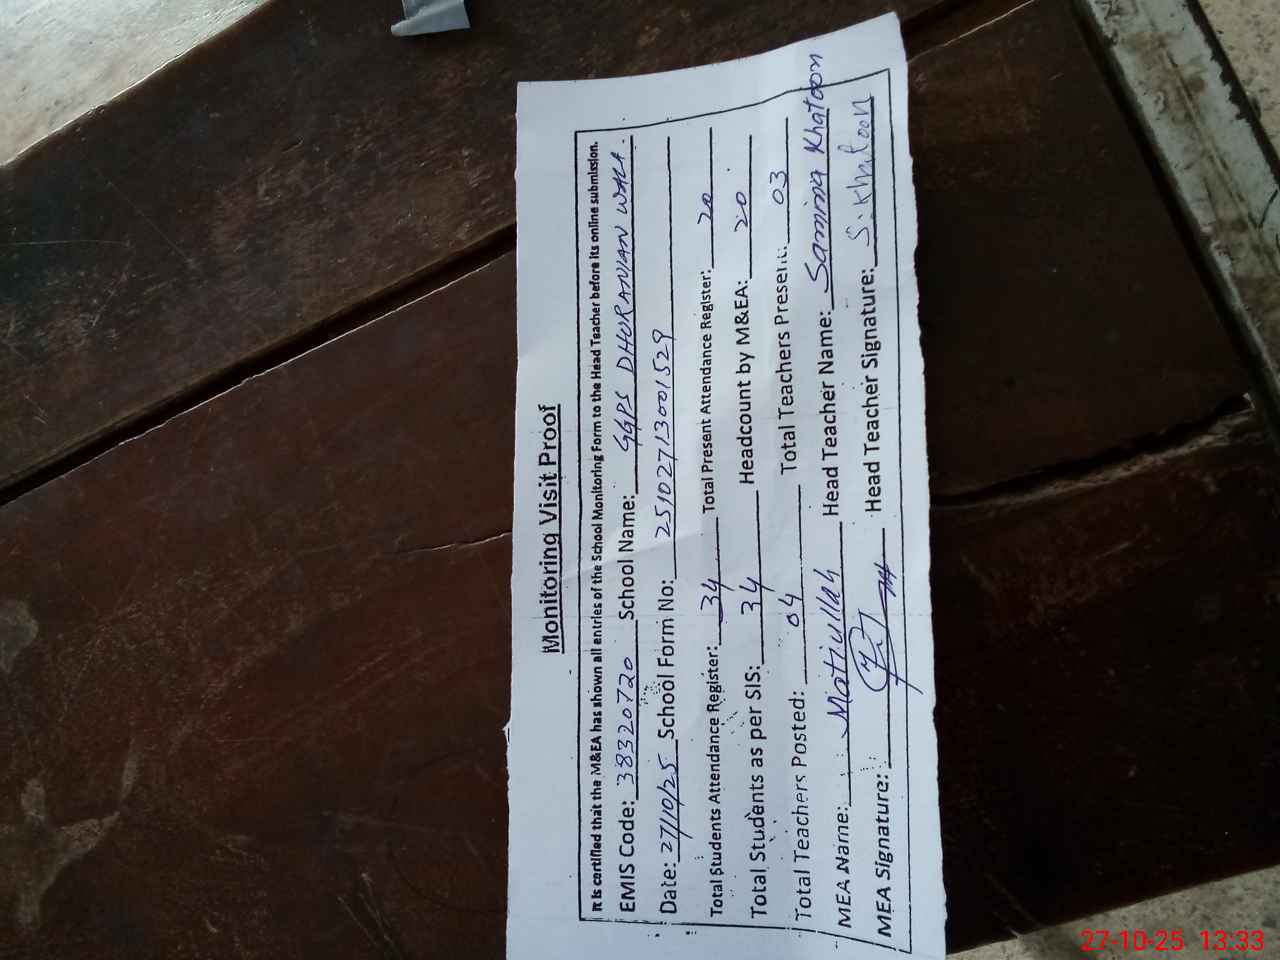 Monitoring Visit Proof
It is certified that the M&EA has shown all entries of the School Monitoring Form to the Head Teacher before its online submission.
EMIS Code: 38320720 School Name: GGPS DHORANIAN WALA.
Date: 27/10/25 School Form No: 25102713001529
Total Students Attendance Register: 34 Total Present Attendance Register: 20
Total Students as per SIS: 34 Headcount by M&EA: 20
Total Teachers Posted: 04 Total Teachers Present: 03
MEA Name: Matiullah Head Teacher Name: Samina Khatoon
MEA Signature: Head Teacher Signature: S. Khatoon
27-10-25 13:33